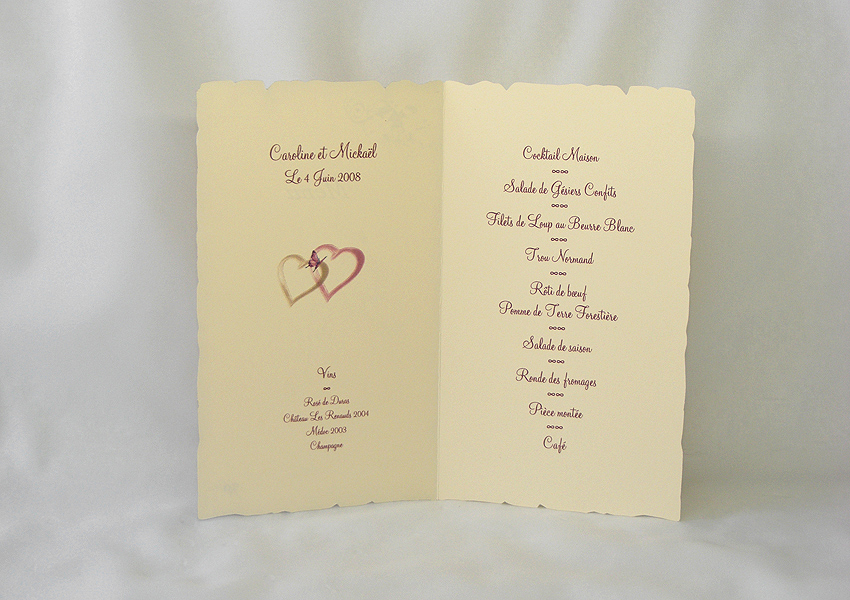 Caroline et Mickaël
Le 4 Juin 2008
Vins
Rosé de Duras
Château Les Renauds 2004
Médoc 2003
Champagne
Cocktail Maison
Salade de Gésiers Confits
Filets de Loup au Beurre Blanc
Trou Normand
Rôti de bœuf
Pomme de Terre Forestière
Salade de saison
Ronde des fromages
Pièce montée
Café